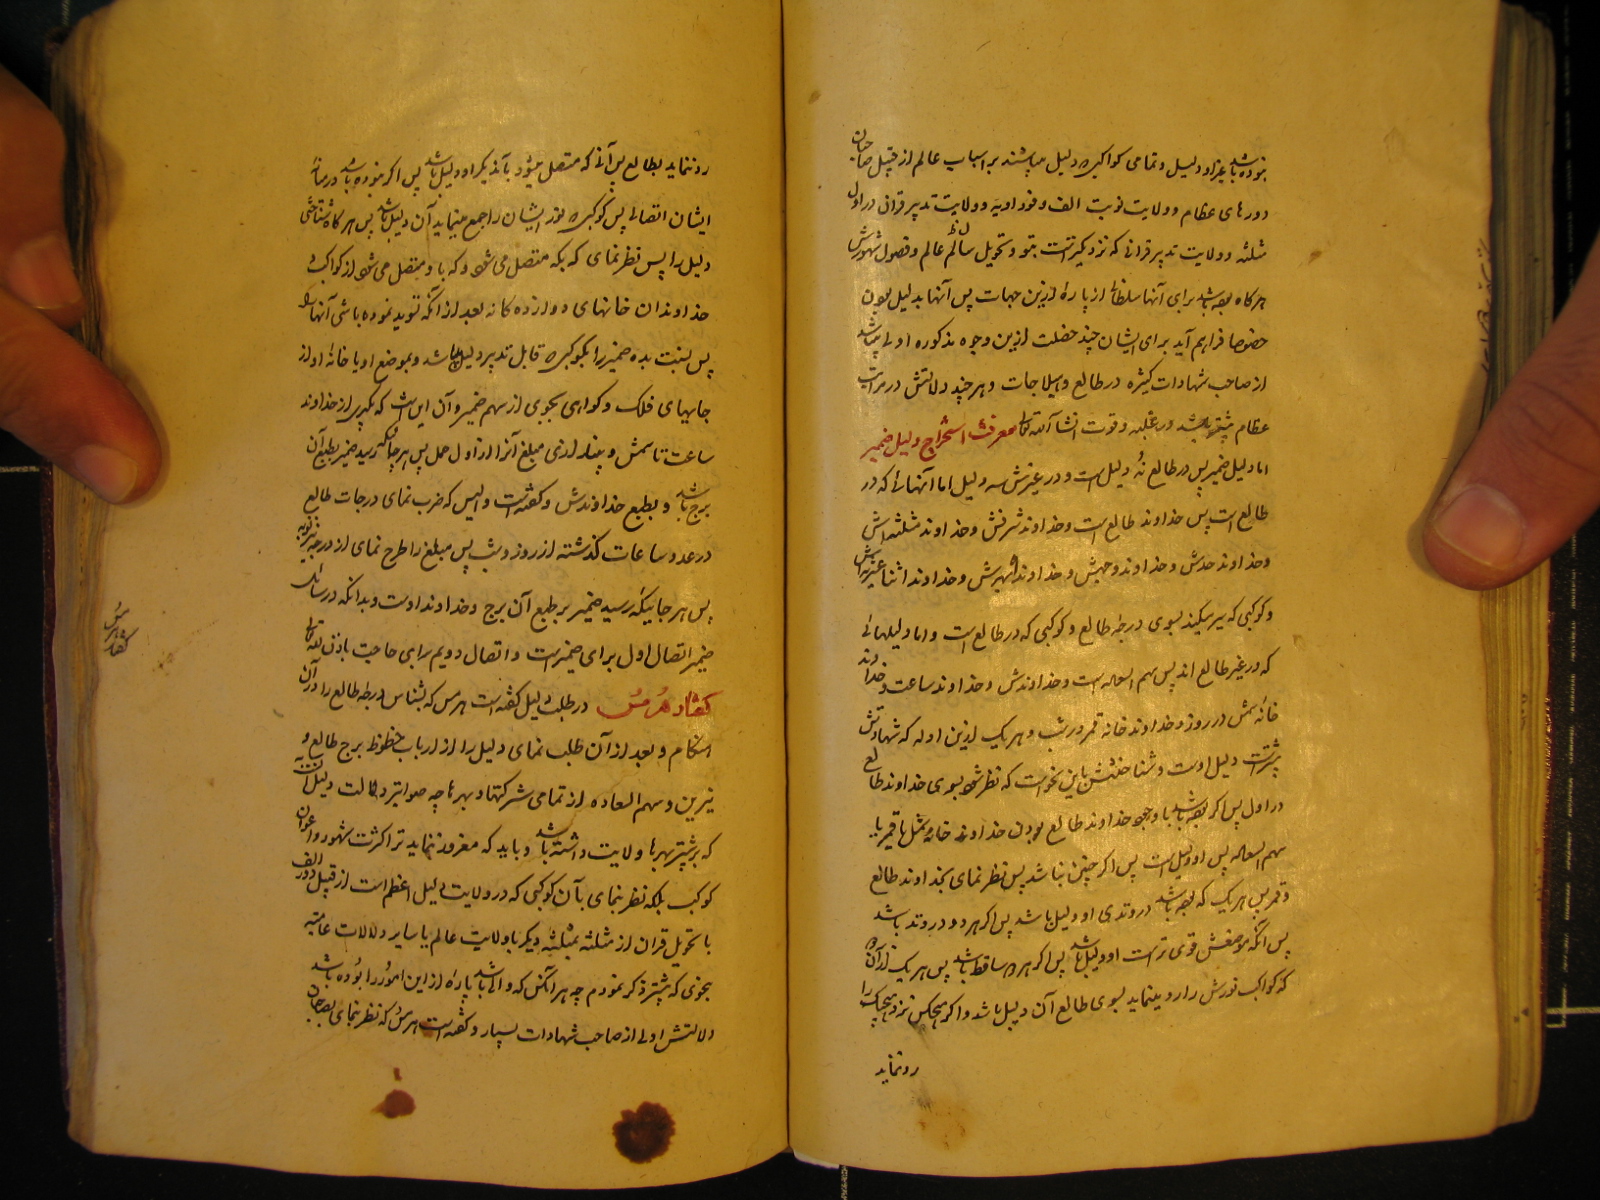 بوده باشد بغیر او دلیل و تمامی کواکب دلیل میباشند بر اسباب عالم از قبل صاحبان
دورهای عظام و ولایت نوبت الف و فرداریه و ولایت تدبیر قران در اول
مثلثه و ولایت تدبیر قرانی که نزدیکتر است بتو و تحویل سال عالم و فصول
هرگاه بوده باشد برای آنها سلطانی از پارهٔ ازین جهات پس آنها بدلیل بودن
خصوصا فراهم آید برای ایشان چند خصلت ازین وجوه مذکوره اولی میباشد
از صاحب شهادات کثیره در طالع و هیلاجات و هر چند دلالتش در مراتب
عظام باشد در غلبه و قوت انشاء الله تعالی معرفت استخراج دلیل ضمیر
اما دلیل ضمیر پس در طالع نُه دلیل است و در غیرش سه دلیل اما آنهائی که در
طالع است پس خداوند طالع است و خداوند شرفش و خداوند مثلثه‌اش
و خداوند حدش و خداوند وجهش و خداوند نهبهرش و خداوند اثنا عشریه‌اش
و کوکبی که سیر میکند بسوی درجه طالع و کوکبی که در طالع است و اما دلیلهائی
که در غیر طالع اند پس سهم السعاده است و خداوندش و خداوند ساعت و خداوند
خانهٔ شمس در روز و خداوند خانه قمر در شب و هر یک ازین ادله که شهادتش
بیشتر است دلیل اوست و شناختنش باین نحو است که نظر شود بسوی خداوند طالع
در اول پس اگر بوده باشد با وجود خداوند طالع بودن خداوند خانهٔ شمس یا قمر یا
سهم السعاده پس او دلیل است پس اگر چنین نباشد پس نظر نمای بخداوند طالع
و قمر پس هر یک که بوده باشد در وتدی او دلیل باشد پس اگر هر دو در وتد باشد
پس آنکه موضعش قوی تر است او دلیل باشد پس اگر هر دو ساقط باشد پس هر یک از آن دو
که کواکب نورش را رد مینماید بسوی طالع آن دلیل باشد و اگر هیچکس نور هیچیک را
رد ننماید
رد ننماید بطالع پس آنی که متصل میشود بآن دیگر او دلیل باشد پس اگر نبوده باشد در میانهٔ
ایشان اتصالی پس کوکبی که نور ایشان را جمع مینماید آن دلیل باشد پس هرگاه شناختی
دلیل را پس نظر نمای که بکه متصل می شود و که باو متصل می شود از کواکب
خداوندان خانهای دوازده کانه بعد از آنکه تسویه نموده باشی آنها را
پس نسبت بده ضمیر را بکوکبی که قابل تدبیر دلیل باشد و بموضع او یا خانهٔ او از
جایهای فلک و گواهی بجوی از سهم ضمیر و آن این است که بگیری از خداوند
ساعت تا شمس و بیندازی مبلغ آنرا از اول حمل پس هر جا که رسید ضمیر بطبع آن
برج باشد و بطبع خداوندش و گفته است والیس که ضرب نمای درجات طالع
در عدد ساعات گذشته از روز و شب پس مبلغ را طرح نمای از درجه
پس هر جائیکه رسید ضمیر بر طبع آن برج و خداوند اوست و بدانکه در مسائل
ضمیر اتصال اول برای ضمیر است و اتصال دویم برای حاجت باذن الله تعالی
گفتار هرمس در طلب دلیل گفته است هرمس که بشناس درجه طالع را در آن
هنگام و بعد از آن طلب نمای دلیل را از ارباب حظوظ برج طالع و
نیرین و سهم السعاده از تمامی شرکتها و بهرها چه صوابتر دلالت دلیل آن است
که بر بیشتر بهرها ولایت داشته باشد و باید که مغرور ننماید ترا کثرت شهود و اعوان
کوکب بلکه نظر نمای بآن کوکبی که در ولایت دلیل اعظم است از قبل دور الف
یا تحویل قران از مثلثه بمثلثه دیگر یا ولایت عالم یا سایر دلالات عامیه
بنحوی که پیشتر ذکر نمودم چه هر آنکس که والی باشد پارهٔ از این امور را بوده باشد
دلالتش اولی از صاحب شهادات بسیار و گفته است هرمس که نظر نمای بصاحبان
گفتار هرمس